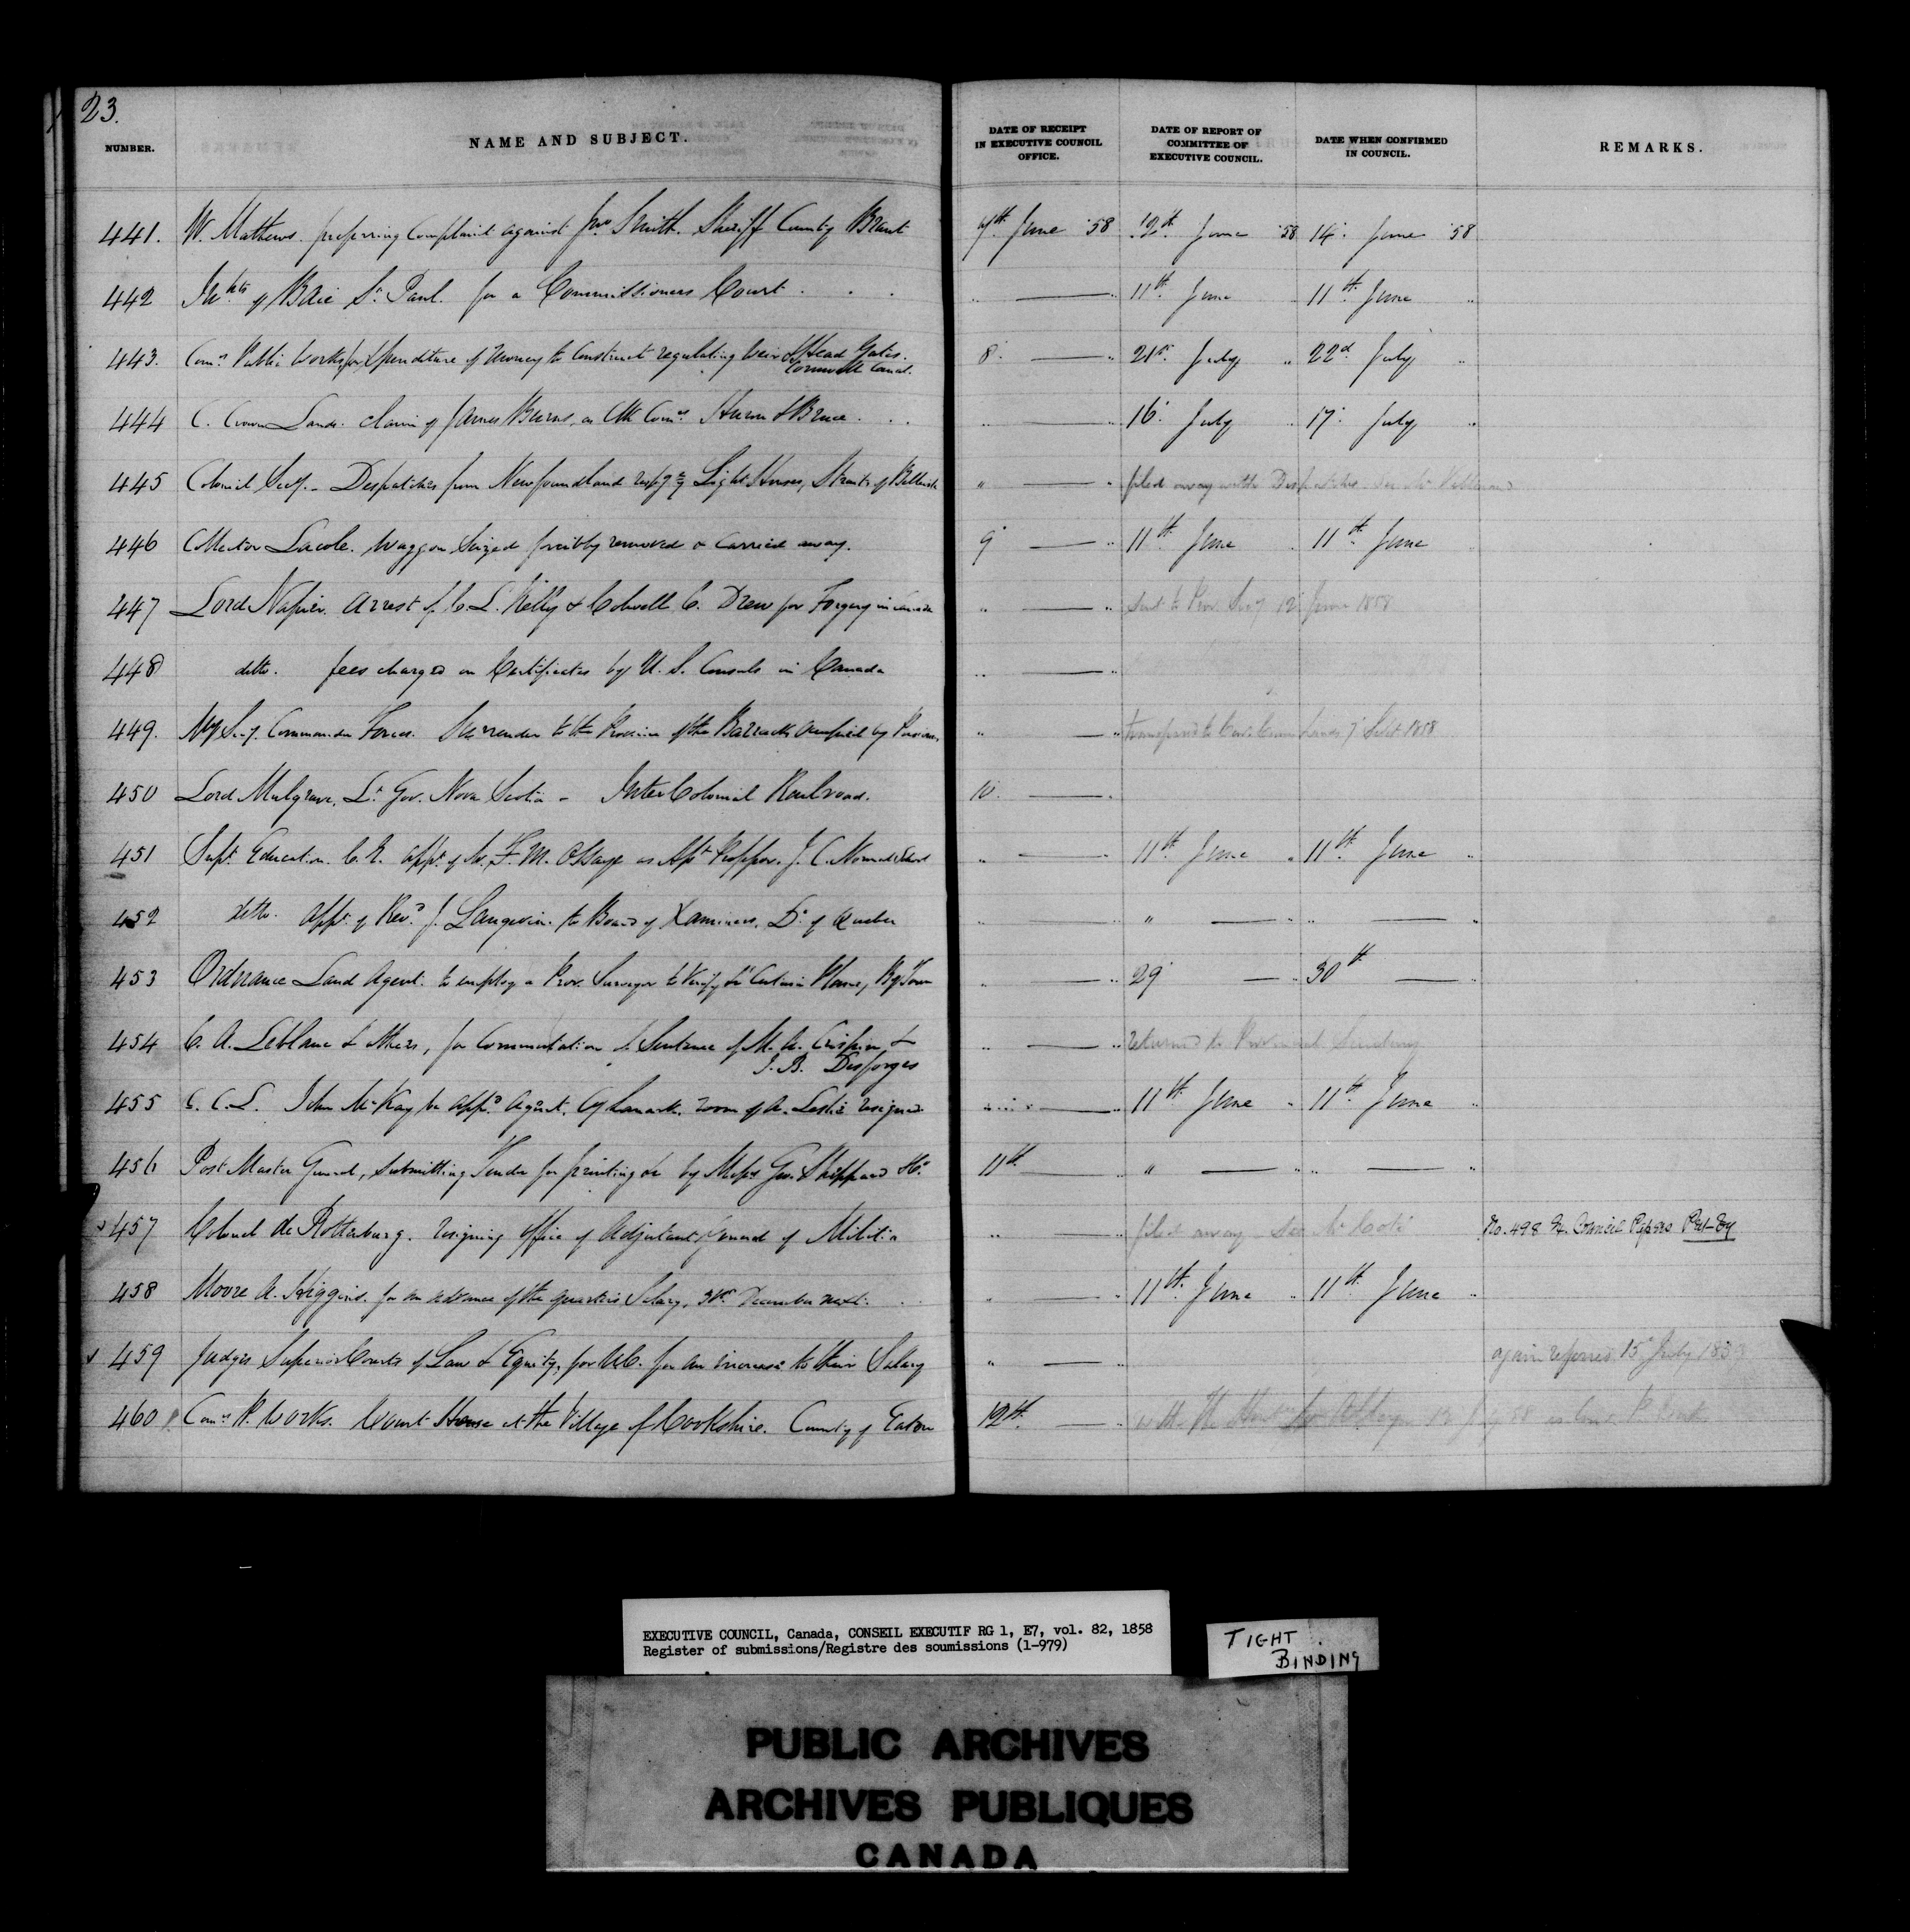 23.
NUMBER. NAME AND SUBJECT. DATE OF RECEIPT IN EXECUTIVE COUNCIL OFFICE. DATE OF REPORT OF COMMITTEE OF EXECUTIVE COUNCIL. DATE WHEN CONFIRMED IN COUNCIL. REMARKS.
441. W. Mathews. preferring Complaint against Jno Smith. Sheriff County Brant 7th June '58 12th June '58 14. June '58
442 Inhbts of Baie St. Paul. for a Commissioners Court . . . " " 11th June 11th June "
443. Comr Public Works, for Expenditure of money to Construct regulating Weir & Head Gates. 8. " 21st July " 22d July "
Cornwall Canal.
444 C. Crown Lands. claim of James Burns, as Clk Comrs Huron & Bruce . . . " " 16. July " 17. July "
445 Colonial Secy. - Despatches from Newfoundland respg Light Houses, Straits of Belleisle " " filed away with Despatches. See Mr
446 Collector Lacole. Waggon Seized forcibly removed & carried away. 9 " 11th June " 11th June
447 Lord Napier. Arrest of C. L. Kelly & Colwell C. Drew for Forgery in Canada " " sent to Prov. Secy 12 June 1858
448 ditto. fees charged on Certificates by U. S. Consuls in Canada " "
449. My Secy. Commander Forces. Surrender to the Province of the Barracks occupied by " " transferred to Crown Lands 7 Sept 1858
450 Lord Mulgrave, Lt Gov. Nova Scotia - InterColonial Railroad. 10. "
451 Supt. Education. C. E. appt. of Mr. F. M. Ossaye as Asst Professor. J. C. Normal School " " 11th June " 11th June "
452 ditto. appt. of Revd J. Langevin. to Board of Examiners, Dt. of Quebec " " " " " "
453 Ordnance Land Agent. to employ a Prov. Surveyor to Verify &c Certain Plans, ByTown " " 29 30th
454 C. A. Leblanc & others, for Commutation of Sentence of M. A. Crispin & " " returned to Provincial Secretary
J. B. Desforges
455 C. C. L. John McKay be appd Agent, Cy Lanark. room of A. Leslie resigned " " 11th June " 11th June "
456 Post Master General, submitting Tender for printing &c by Messrs Geo. Sheppard &Co 11th " " " "
457 Colonel de Rottenburg. resigning office of Adjutant General of Militia " " filed away See Mr Coté No. 498 Ex. Council Papers Put-By
458 Moore A. Higgins. for an advance of the quarter's Salary, 31st December next. " " 11th June " 11th June "
459 Judges Superior Courts of Law & Equity, for U.C. for an increase to their Salary " " again referred 15 July 185
460 Comr P. Works. Court House at the Village of Cookshire. County of Eaton 12th "
EXECUTIVE COUNCIL, Canada, CONSEIL EXECUTIF RG 1, E7, vol. 82, 1858
Register of submissions/Registre des soumissions (1-979)
TIGHT
BINDING
PUBLIC ARCHIVES
ARCHIVES PUBLIQUES
CANADA